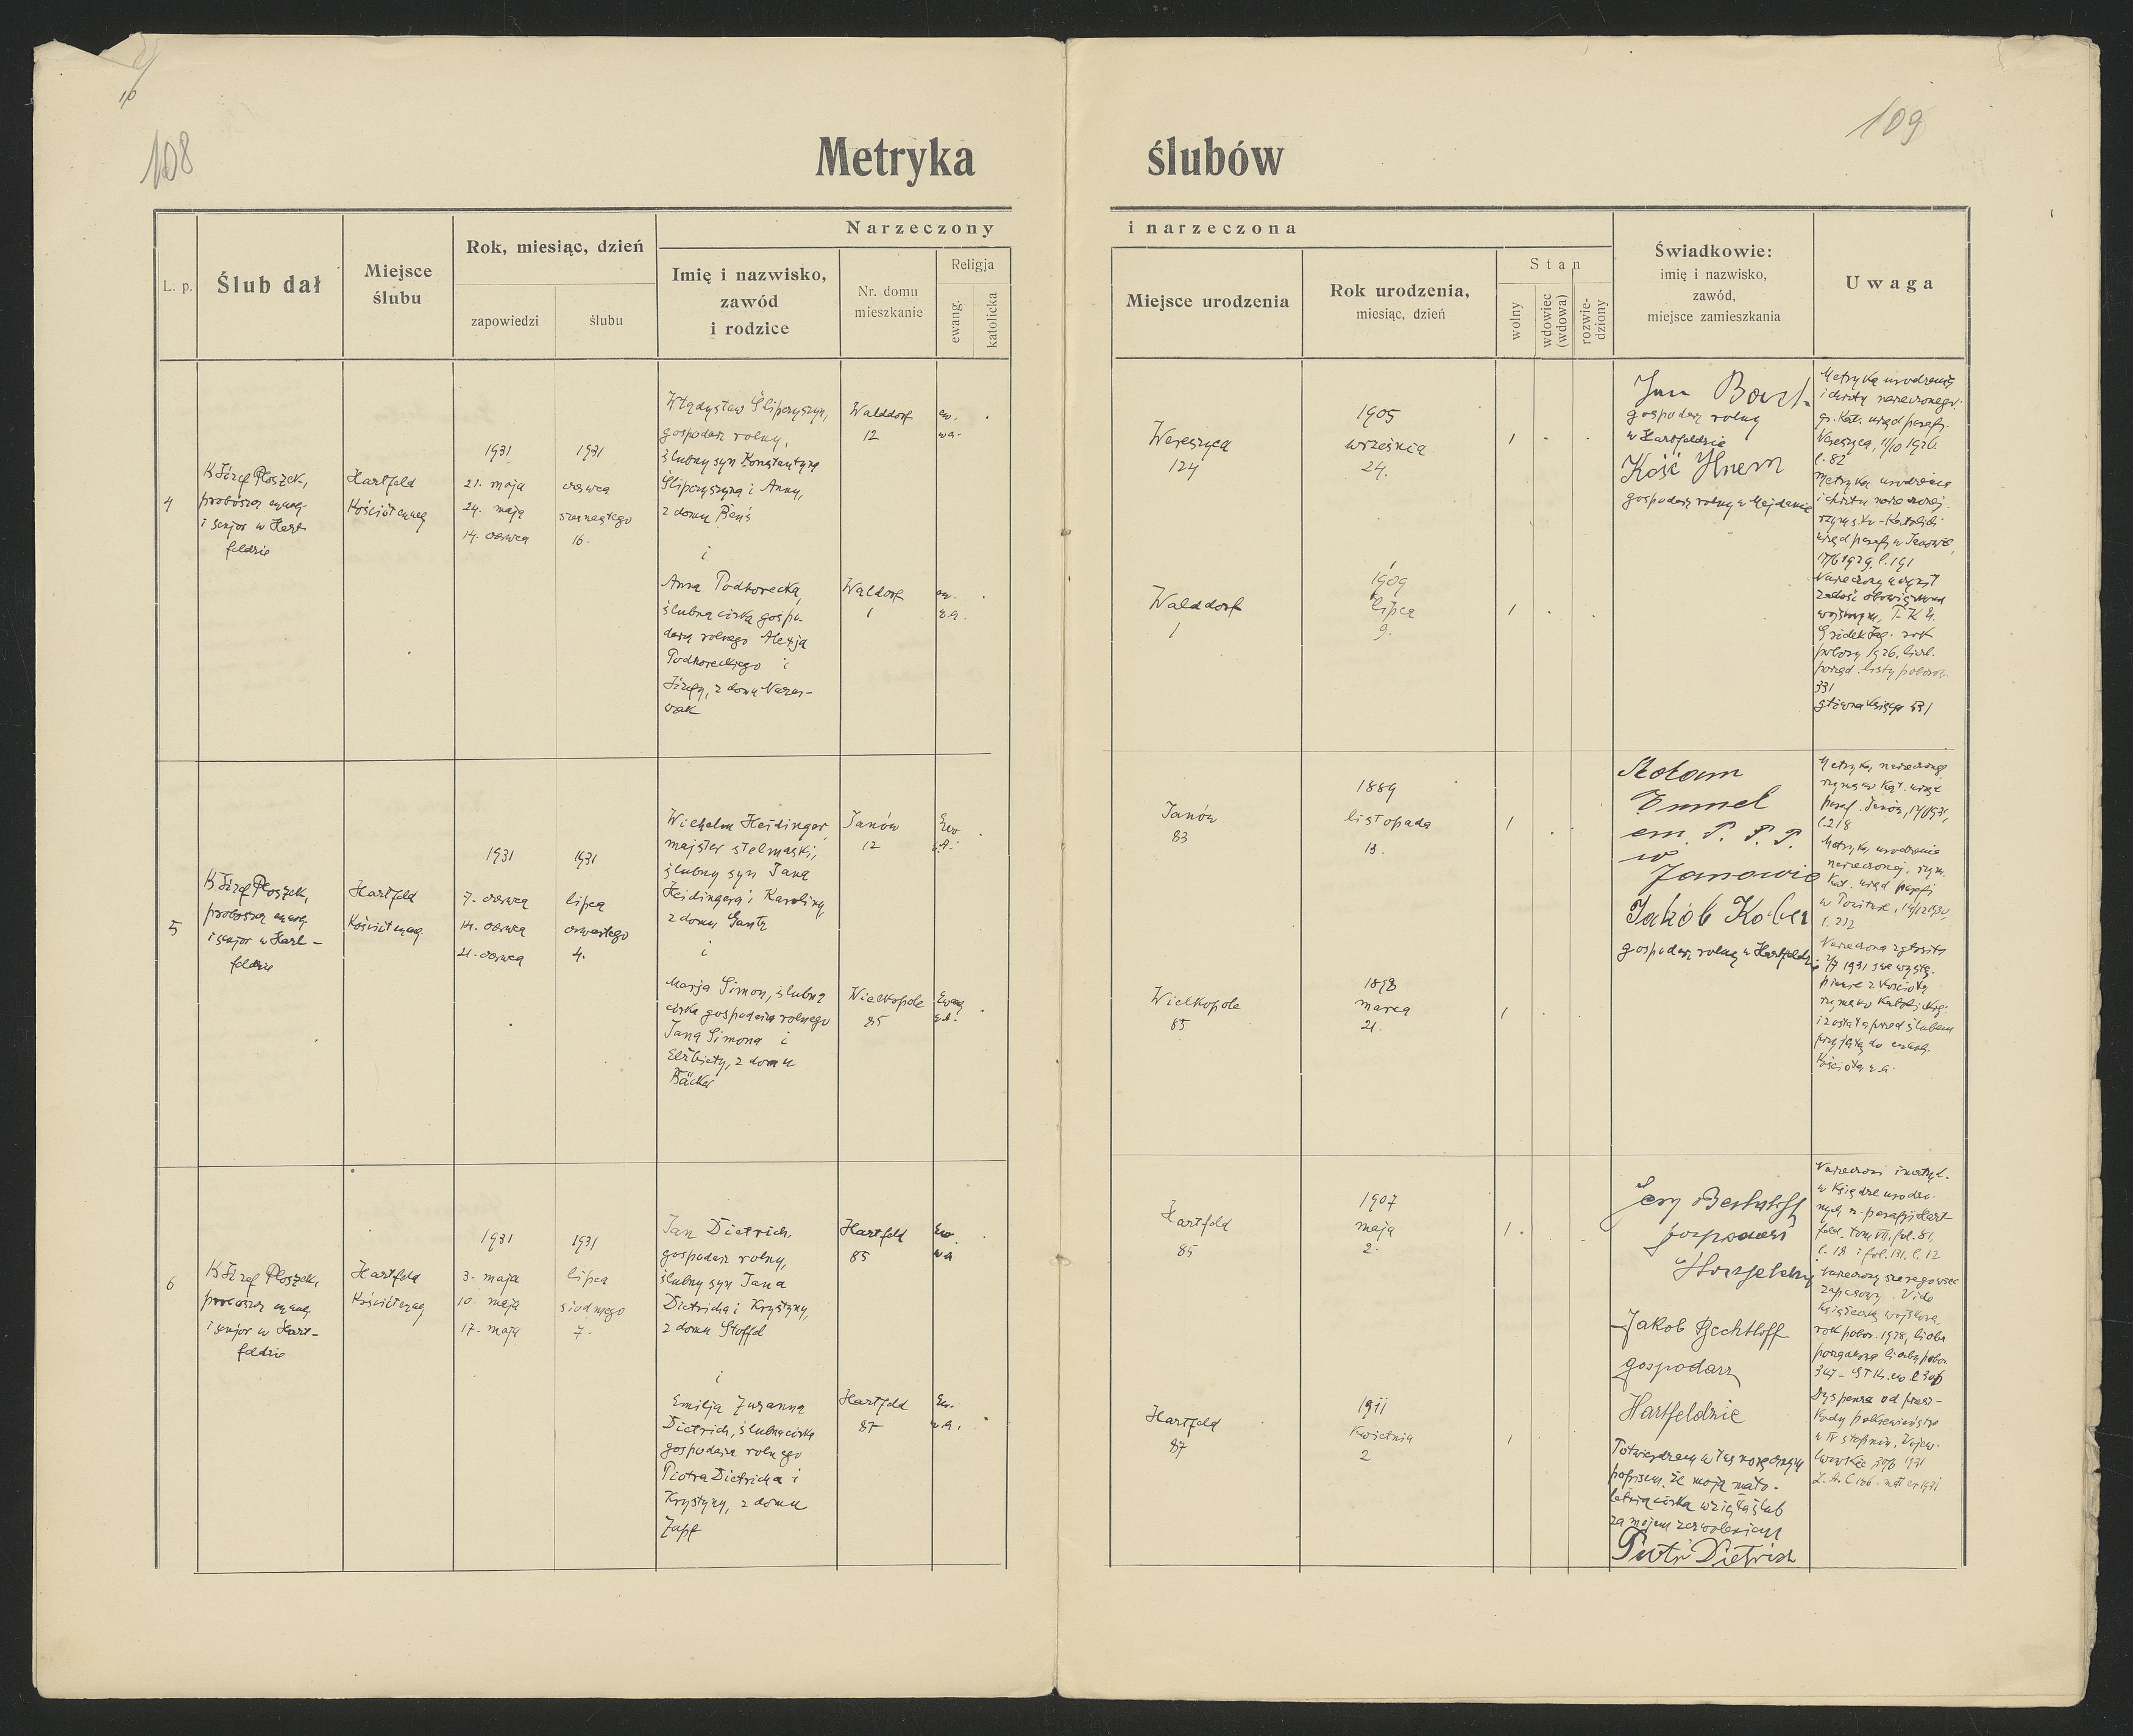 108
109
Metryka ślubów
L. p.
Ślub dał
Miejsce
ślubu
Rok, miesiąc, dzień
zapowiedzi
ślubu
Narzeczony
i narzeczona
Imię i nazwisko,
zawód
i rodzice
Nr. domu
mieszkanie
Religja
ewang.
katolicka
Miejsce urodzenia
Rok urodzenia,
miesiąc, dzień
Stan
wolny
wdowiec
(wdowa)
rozwie-
dziony
Świadkowie:
imię i nazwisko,
zawód,
miejsce zamieszkania
Uwaga
4
X Józef Ploszek,
proboszcz ewang.
i senjor w Hart-
feldzie
Hartfeld
Kościół ewag
1931
21. maja
24. maja
14. czerwca
1931
czerwca
szesnastego
16.
Władysław Śliperszyn,
gospodarz rolny,
ślubny syn Konstantyna
i Anny,
z domu Beń
i
Anna Podhorecka,
ślubna córka gospo-
darza rolnego Alexja
Podhoreckiego i
Józefy, z domu
Walddorf
12
ew.
w.a.
Waldorf
1
ew.
w.a.
Wereszyca
124
1905
września
24.
1
Walddorf
1
1909
lipca
9.
1
Jan
gospodarz rolny
w Hartfeldzie
Kość Hnem
gospodarz rolny w Majdanie
Metryka urodzenia
i chrztu narzeczonego:
gr. kat. urząd parafj.
Wereszyca, 11/10 1926.
l. 82
Metryka urodzenia
i chrztu narzeczonej.
rzymsko-katolicki
urząd parafj. w Janowie,
1929, l. 191
Narzeczony uczynił
zadość obowiązkowi
wojskowym, P. K. U.
Gródek Jag. rok
poborowy 1926, liczb.
porząd. listy poborow.
331
główna księga 531
5
X Józef Ploszek,
proboszcz ewang
i senjor w Hart-
feldzie
Hartfeld
Kościół ewag.
1931
7. czerwca
14. czerwca
21. czerwca
1931
lipca
czwartego
4.
Wilhelm Heidinger,
majster stelmaski,
ślubny syn Jana
Heidingera i Karoliny,
z domu Gantz
i
Marja Simon, ślubna
córka gospodarza rolnego
Jana Simona i
Elżbiety, z domu
Bäcker
Janów
12
Ew
w.A.
Wielkopole
85
Ewag
w.A.
Janów
83
1889
listopada
13.
1
Wielkopole
85
1898
marca
21.
1
Adam
Emmel
em. P. P. P.
w
Janowie
Jakób Kober
gospodarz rolny w Hartfeldzie
Metryka narzeczonego
rzymsko kat. urząd
paraf. Janów,
l. 218
Metryka urodzenia
narzeczonej, rzym.
kat. urząd parafj
l. 212
Narzeczona zgłosiła
2/7 1931 swe wystą-
pienie z kościoła
rzymsko katolickiego
i została przed ślubem
przyjętą do ewang.
kościoła w.a.
6
X Józef Ploszek,
proboszcz ewang.
i senjor w Hart-
feldzie
Hartfeld
Kościół ewag
1931
3. maja
10. maja
17. maja
1931
lipca
siódmego
7.
Jan Dietrich,
gospodarz rolny,
ślubny syn Jana
Dietricha i Krystyny,
z domu Stoffel
i
Emilja Zuzanna
Dietrich, ślubna córka
gospodarza rolnego
Piotra Dietricha i
Krystyny, z domu
Zapf
Hartfeld
85
Ew.
w.a
Hartfeld
87
Ew.
w.a.
Hartfeld
85
1907
maja
2.
1
Hartfeld
87
1911
kwietnia
2
1
Jerzy Bechtloff
gospodarz
Hartfeldzie
Jakob Bechtloff
gospodarz
Hartfeldzie
Potwierdzam własnoręcznym
popisem, że moja mało-
letnia córka wzięła ślub
za mojem zezwoleniem
Piotr Dietrich
Narzeczeni
w księdze urodzo-
nych n. parafji Hart-
feld. tom VII, fol. 81,
l. 18 i fol. 131, l. 12
Narzeczony szeregowiec
zapasowy. Vide
książeczka wojskowa,
rok pobor. 1928, liczba
porządkowa liczby pobor.
Dyspenza od przesz-
kody pokrewieństwa
w IV stopniu, Wojew.
lwowskie 1931